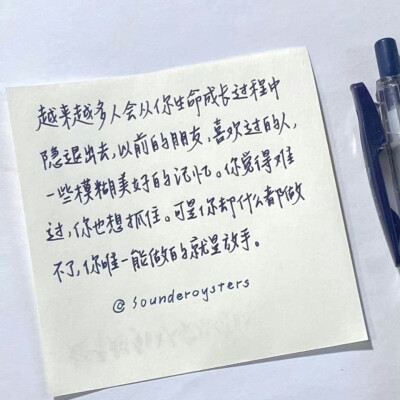 越来越多人会从你生命成长过程中
隐退出去,以前的朋友,喜欢过的人,
一些模糊美好的记忆。你觉得难
过,你也想抓住。可是你却什么都做
不了,你唯一能做的就是放手。
@sounderoysters